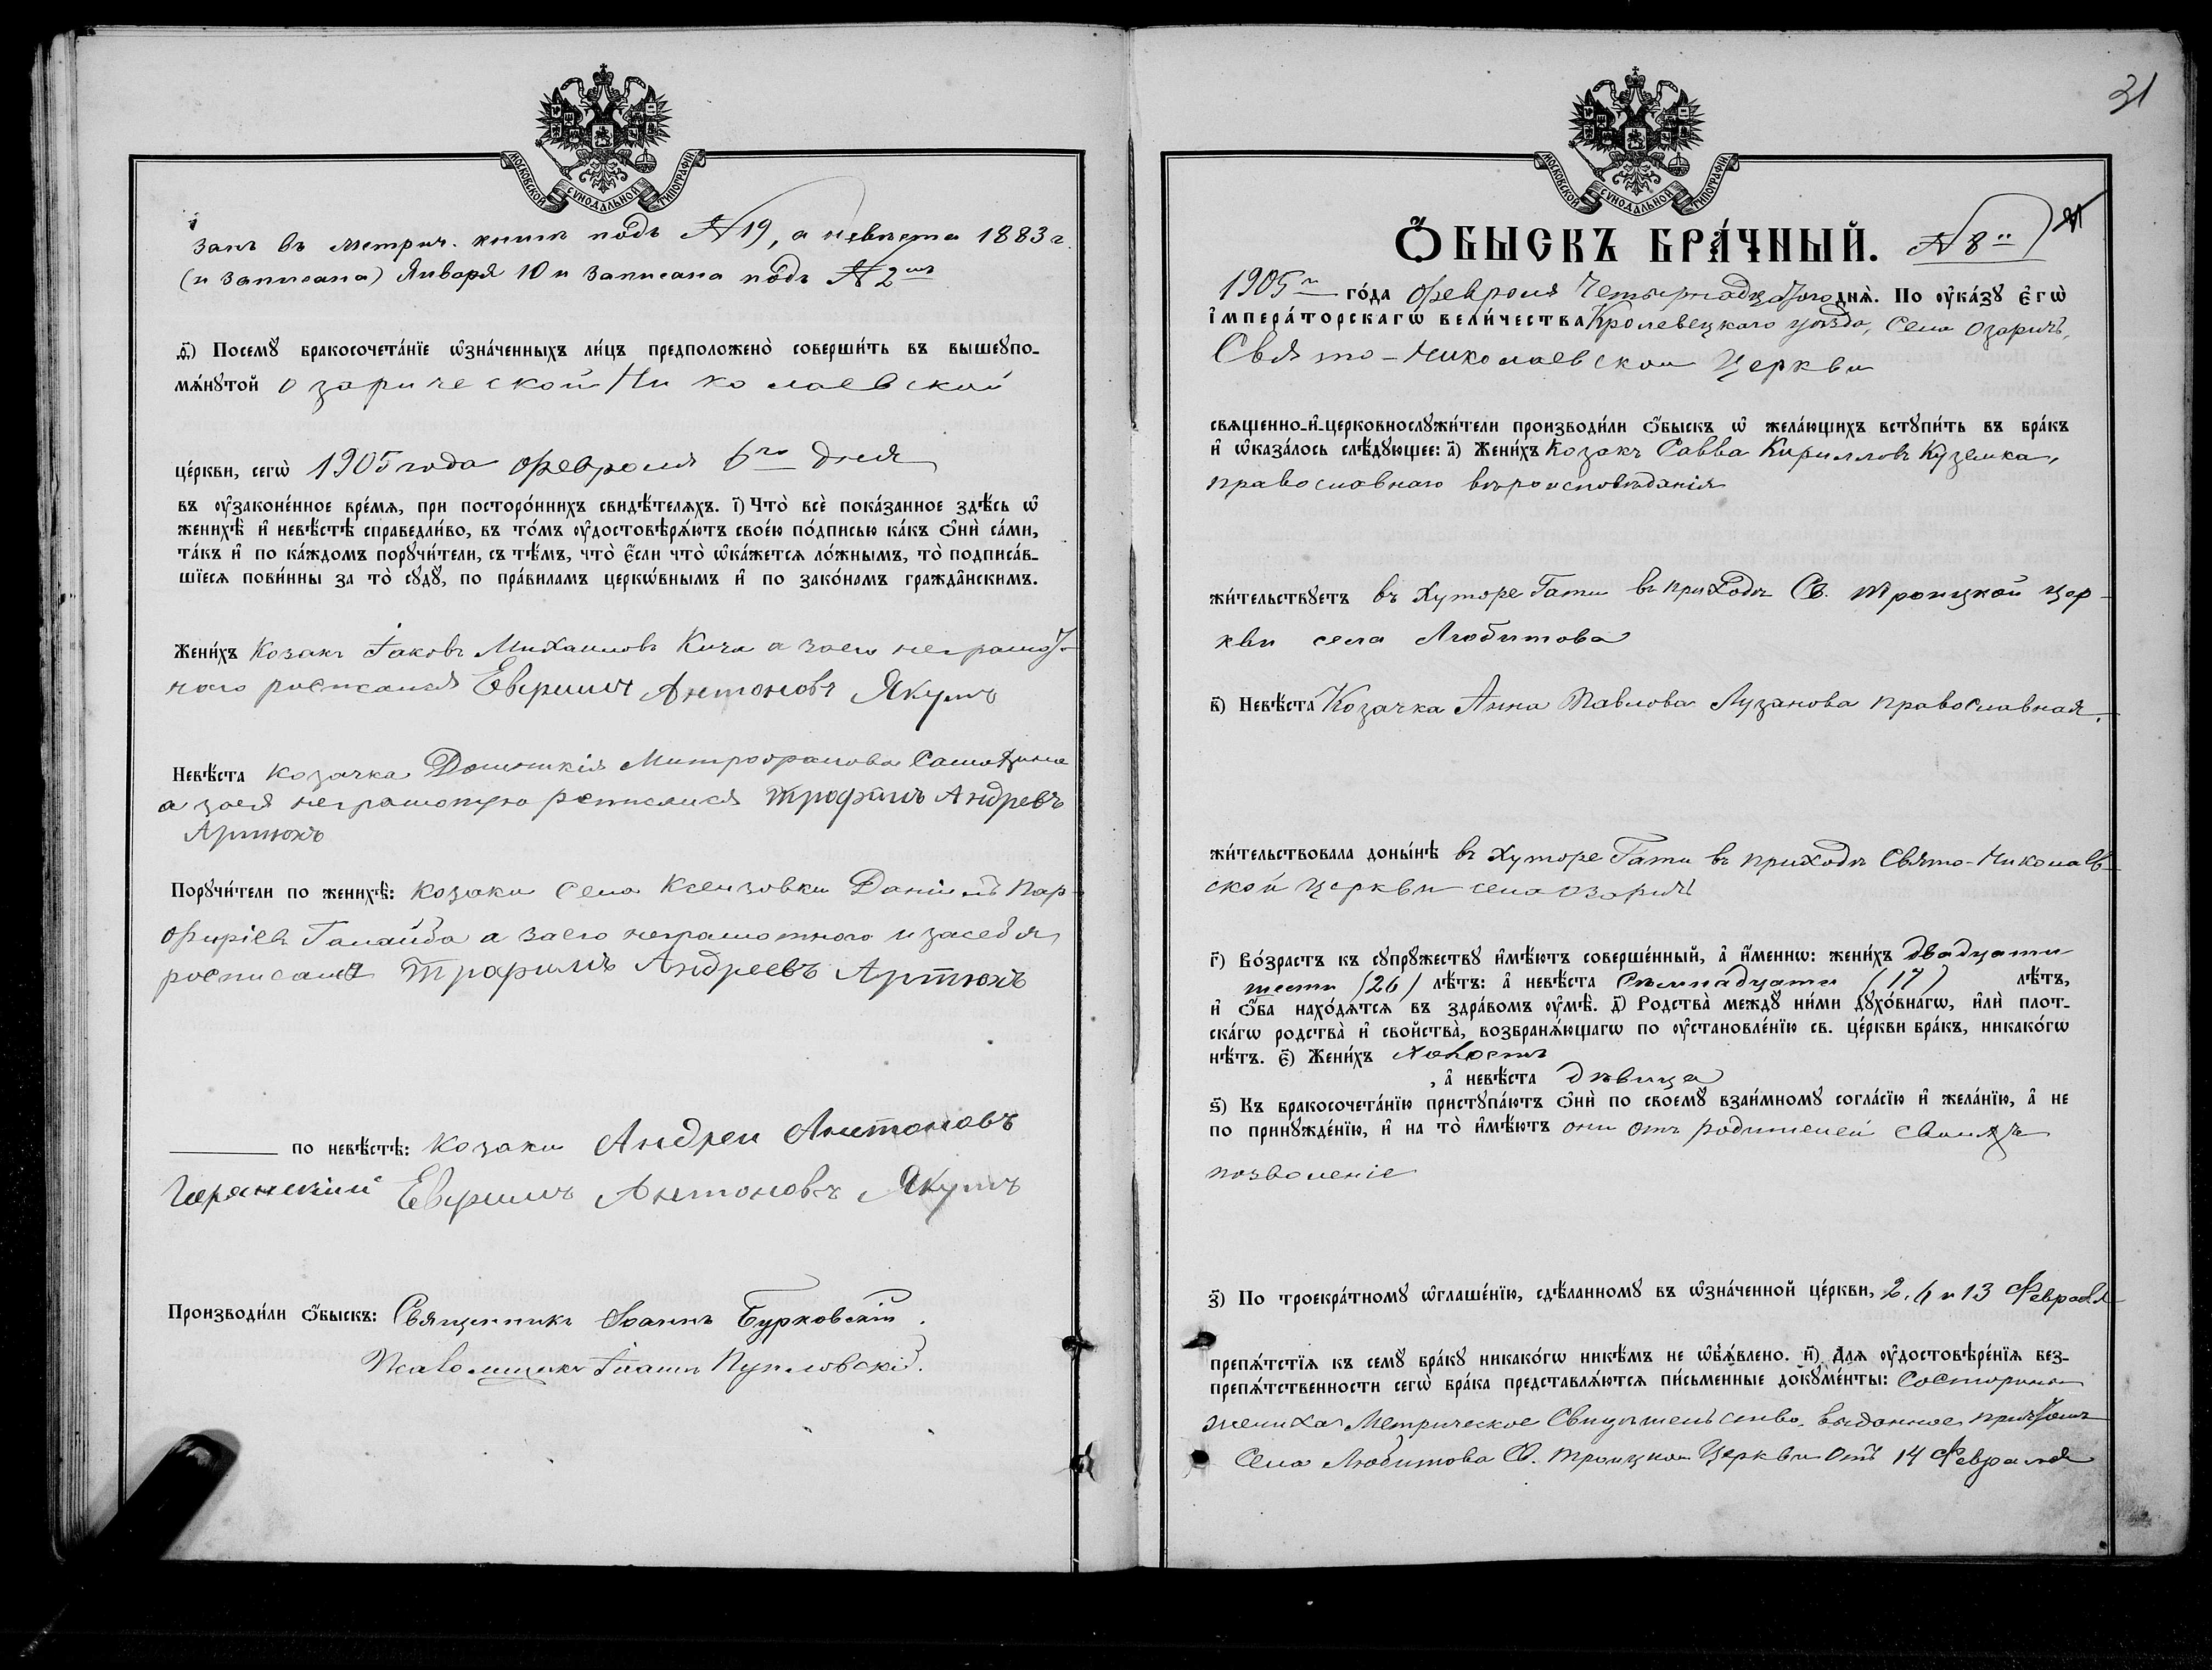 МОСКОВСКОЙ СУНОДАЛЬНОЙ ТИПОГРАФІИ
зап. въ метрич. книгѣ подъ № 19, а невѣста 1883 г.
(и записана) Января 10 и записана подъ № 2мъ
ѳ҃) Посемꙋ бракосочета́нїе ѡ҆зна́ченныхъ ли́цъ предположено̀ соверши́ть въ вышеꙋпо-
мѧ́нꙋтой Озарической Николаевской
це́ркви, сегѡ̀ 1905 года февраля 6го дня
въ ᲂу҆законе́нное вре́мѧ, при посторо́ннихъ свидѣ́телѧхъ. і҃) Что̀ всѐ пока́занное здѣ́сь ѡ҆
женихѣ̀ и҆ невѣ́стѣ справедли́во, въ то́мъ ᲂу҆достовѣрѧ́ютъ свое́ю по́дписью ка́къ ѻ҆нѝ са́ми,
та́къ и҆ по ка́ждомъ порꙋчи́тели, съ тѣ́мъ, что̀ є҆́сли что̀ ѡ҆ка́жетсѧ ло́жнымъ, то̀ подписа́в-
шїесѧ пови́нны за то̀ сꙋдꙋ̀, по пра́виламъ церкѡ́внымъ и҆ по зако́намъ гражда̑нскимъ.
Жени́хъ Козакъ Іаковъ Михаиловъ Кича а за его неграмот-
наго росписался Евфимъ Антоновъ Якумъ
Невѣ́ста козачка Домникія Митрофанова
а за ея неграмотную росписался Трофимъ Андревъ
Артюхъ
Порꙋчи́тели по женихѣ̀: козаки села Ксензовки Даніилъ Пор-
фиріевъ Галайба а за его неграмотного и за себя
росписался Трофимъ Андреевъ Артюхъ
по невѣ́стѣ: козаки Андреи Антоновъ
Евфимъ Антоновъ Якумъ
Производи́ли ѻ҆́быскъ: Священникъ Іоаннъ Бурковскій.
Псаломщикъ Іоаннъ
31
МОСКОВСКОЙ СУНОДАЛЬНОЙ ТИПОГРАФІИ
Ѻ҆БЫСКЪ БРА́ЧНЫЙ. № 8й
1905го го́да февраля Четырнадцатого днѧ̀. По ᲂу҆ка́зꙋ є҆гѡ̀
і҆мпера́торскагѡ вели́чества Кролевецкаго уѣзда, села Озаричъ,
Свято-Николаевской Церкви
свѧщенно-и҆-церковнослꙋжи́тели производи́ли ѻ҆́быскъ ѡ҆ жела́ющихъ встꙋпи́ть въ бра́къ
и҆ ѡ҆каза́лось слѣ́дꙋющее: а҃) Жени́хъ Козакъ Савва Кирилловъ Куземка,
православнаго вѣроисповѣданія
жи́тельствꙋетъ въ хуторе Гати въ приходѣ Св. Троицкой цер-
кви села Любитова
в҃) Невѣ́ста Козачка Анна Павлова Лузанова православная.
жи́тельствовала доны́нѣ въ хуторе Гати въ приходѣ Свято-Николаев-
ской церкви села Озаричъ
г҃) Во́зрастъ къ сꙋпрꙋ́жествꙋ и҆мѣ́ютъ соверше́нный, а҆ и҆́меннѡ: жени́хъ двадцати
шести (26) лѣ́тъ: а҆ невѣ́ста Семнадцати (17) лѣ́тъ,
и҆ ѻ҆́ба нахо́дѧтсѧ въ здра́вомъ ᲂу҆мѣ̀. д҃) Родства̀ междꙋ̀ ни́ми дꙋхо́внагѡ, и҆лѝ плот-
ска́гѡ родства̀ и҆ сво́йства̀, возбранѧ́ющагѡ по ᲂу҆становле́нїю св. це́ркви бра́къ, никако́гѡ
нѣ́тъ. є҃) Жени́хъ холостъ
, а҆ невѣ́ста дѣвица
ѕ҃) Къ бракосочета́нїю пристꙋпа́ютъ ѻ҆нѝ по своемꙋ̀ взаи́мномꙋ согла́сїю и҆ жела́нїю, а҆ не
по принꙋжде́нїю, и҆ на то̀ и҆мѣ́ютъ они отъ родителей своихъ
позволеніе
з҃) По троекра́тномꙋ ѡ҆глаше́нїю, сдѣ́ланномꙋ въ ѡ҆зна́ченной це́ркви, 2, 6 и 13 Февраля
препѧ́тстїѧ къ семꙋ̀ бра́кꙋ никако́гѡ никѣ́мъ не ѡ҆б̾ѧ́влено. и҃) Длѧ̀ ᲂу҆достовѣре́нїѧ без-
препѧ́тственности сегѡ̀ бра́ка представлѧ́ютсѧ пи́сьменные докꙋме́нты: Со стороны
жениха Метрическое Свидѣтельство, выданное причтомъ
Села Любитова Св. Троицкой Церкви отъ 14 Февраля